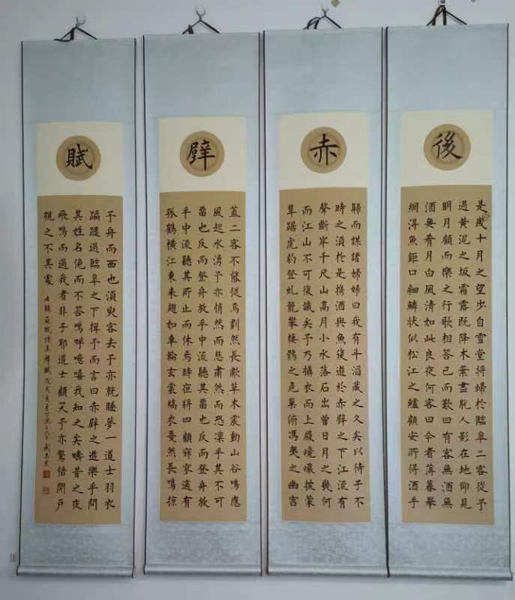 後
是歲十月之望步自雪堂將歸於臨皋二客從予
過黃泥之坂霜露既降木葉盡脫人影在地仰見
明月顧而樂之行歌相答已而歎曰有客無酒無
酒無肴月白風清如此良夜何客曰今者薄暮舉
網得魚巨口細鱗狀似松江之鱸顧安所得酒乎
赤
歸而謀諸婦婦曰我有斗酒藏之久矣以待子不
時之須於是攜酒與魚復遊於赤壁之下江流有
聲斷岸千尺山高月小水落石出曾日月之幾何
而江山不可復識矣予乃攝衣而上履巉巖披蒙
茸踞虎豹登虬龍攀棲鶻之危巢俯馮夷之幽宮
壁
蓋二客不能從焉劃然長嘯草木震動山谷鳴應
風起水涌予亦悄然而悲肅然而恐凜乎其不可
留也反而登舟放乎中流聽其留也反而登舟放
乎中流聽其所止而休焉時夜將半四顧寂寥適有
孤鶴橫江東來翅如車輪玄裳縞衣戛然長鳴掠
賦
予舟而西也須臾客去予亦就睡夢一道士羽衣
蹁躚過臨皋之下揖予而言曰赤壁之遊樂乎問
其姓名俛而不答嗚呼噫嘻我知之矣疇昔之夜
飛鳴而過我者非子耶道士顧笑予亦驚悟開戶
視之不見其處